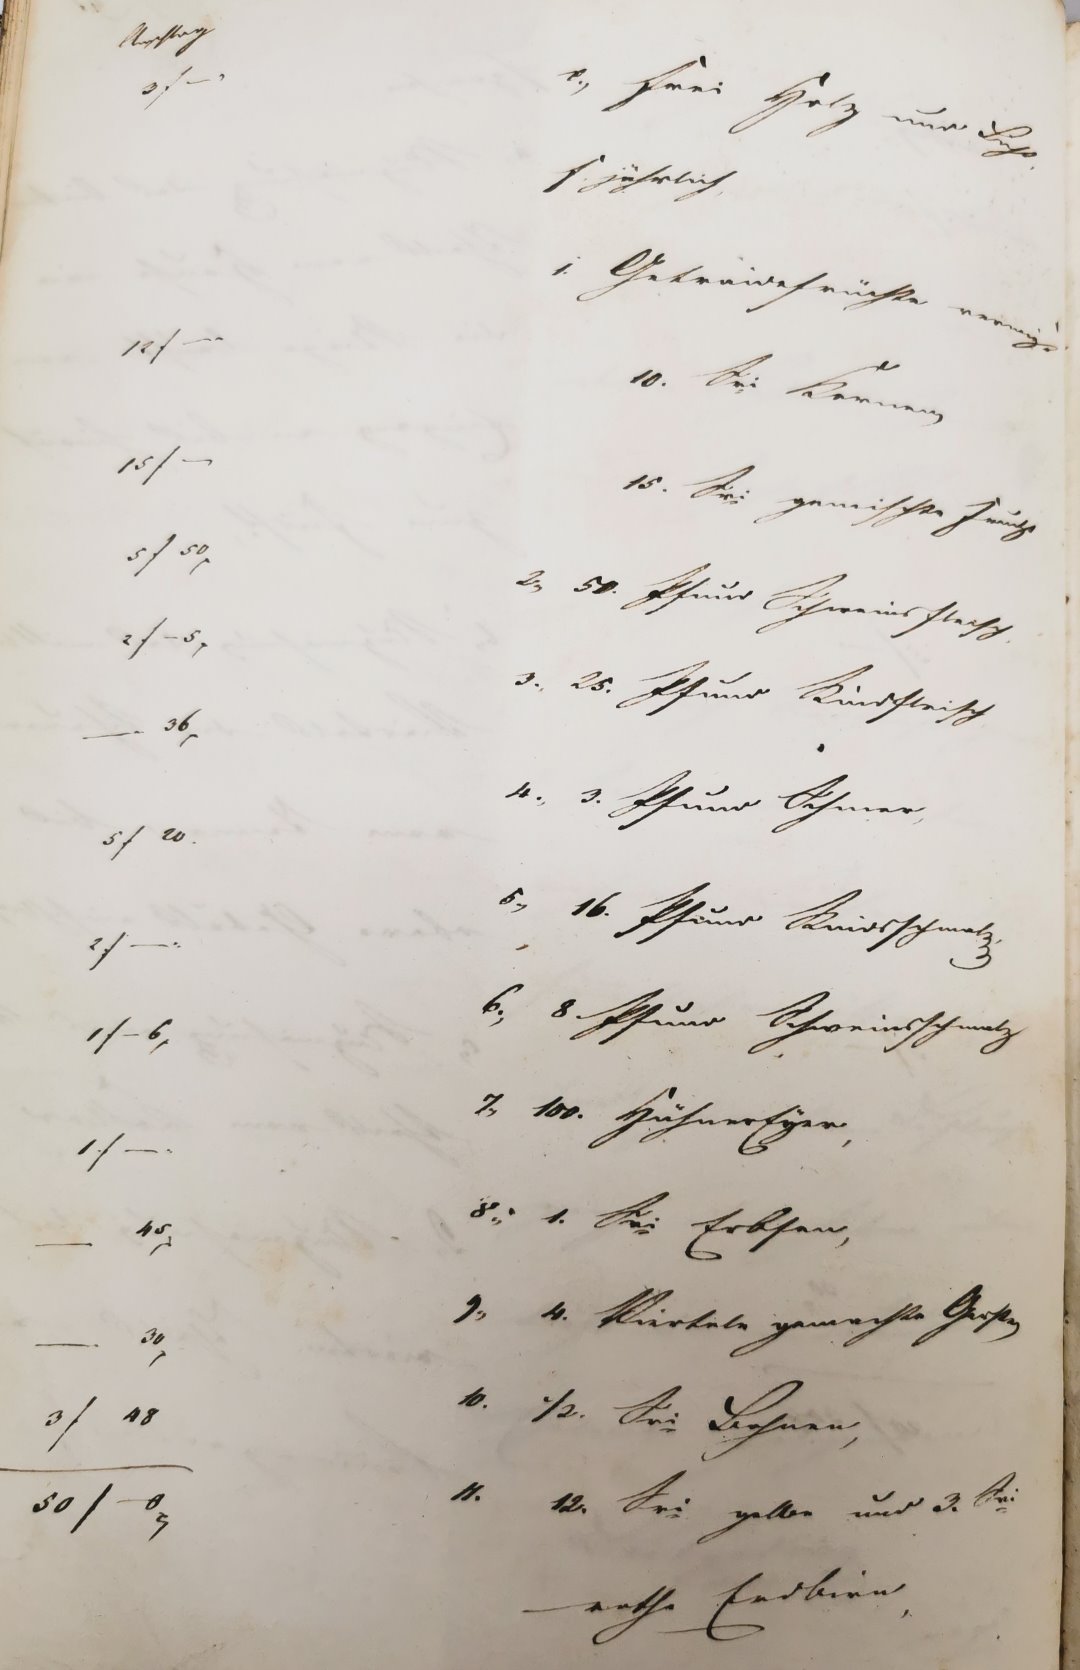 Anschlag
3 f —
e., Frei Holz und Licht
f. jährlich,
1. Getraidefrüchte
12 f — 10. Sri Kernen
15 f — 15. Sri gemischte Frucht
5 f 50, 2., 50. Pfund Schweinefleisch,
2 f — 5, 3., 25. Pfund Rindfleisch
— 36, 4., 3. Pfund Schmer,
5 f 20. 5., 16. Pfund Rindsschmalz,
2 f — 6., 8. Pfund Schweinsschmalz
1 f — 6, 7., 100. HühnerEyer,
1 f — 8., 1. Sri Erbsen,
— 45, 9., 4. Viertele gemachte Gersten
— 30, 10. 1/2. Sri Bohnen,
3 f 48 11. 12. Sri gelbe und 3. Sri
50 f — 8,
rothe Erdbirn,